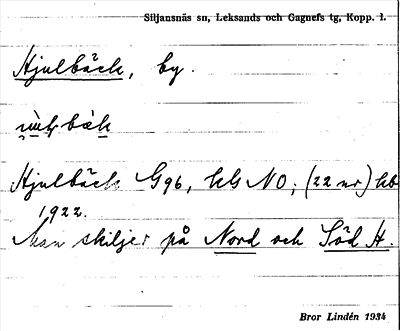 Siljansnäs sn, Leksands och Gagnefs tg, Kopp. l.
Hjulbäck, by.
Hjulbäck G96, kls NO; (22 nr) kb
1922.
Man skiljer på Nord och Söd H.
Bror Lindén 1934